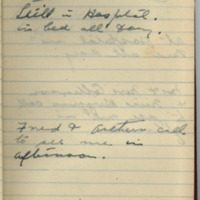 Still in Hospital.
in bed all Day.
Fred & Arthur call
to see me in
afternoon.